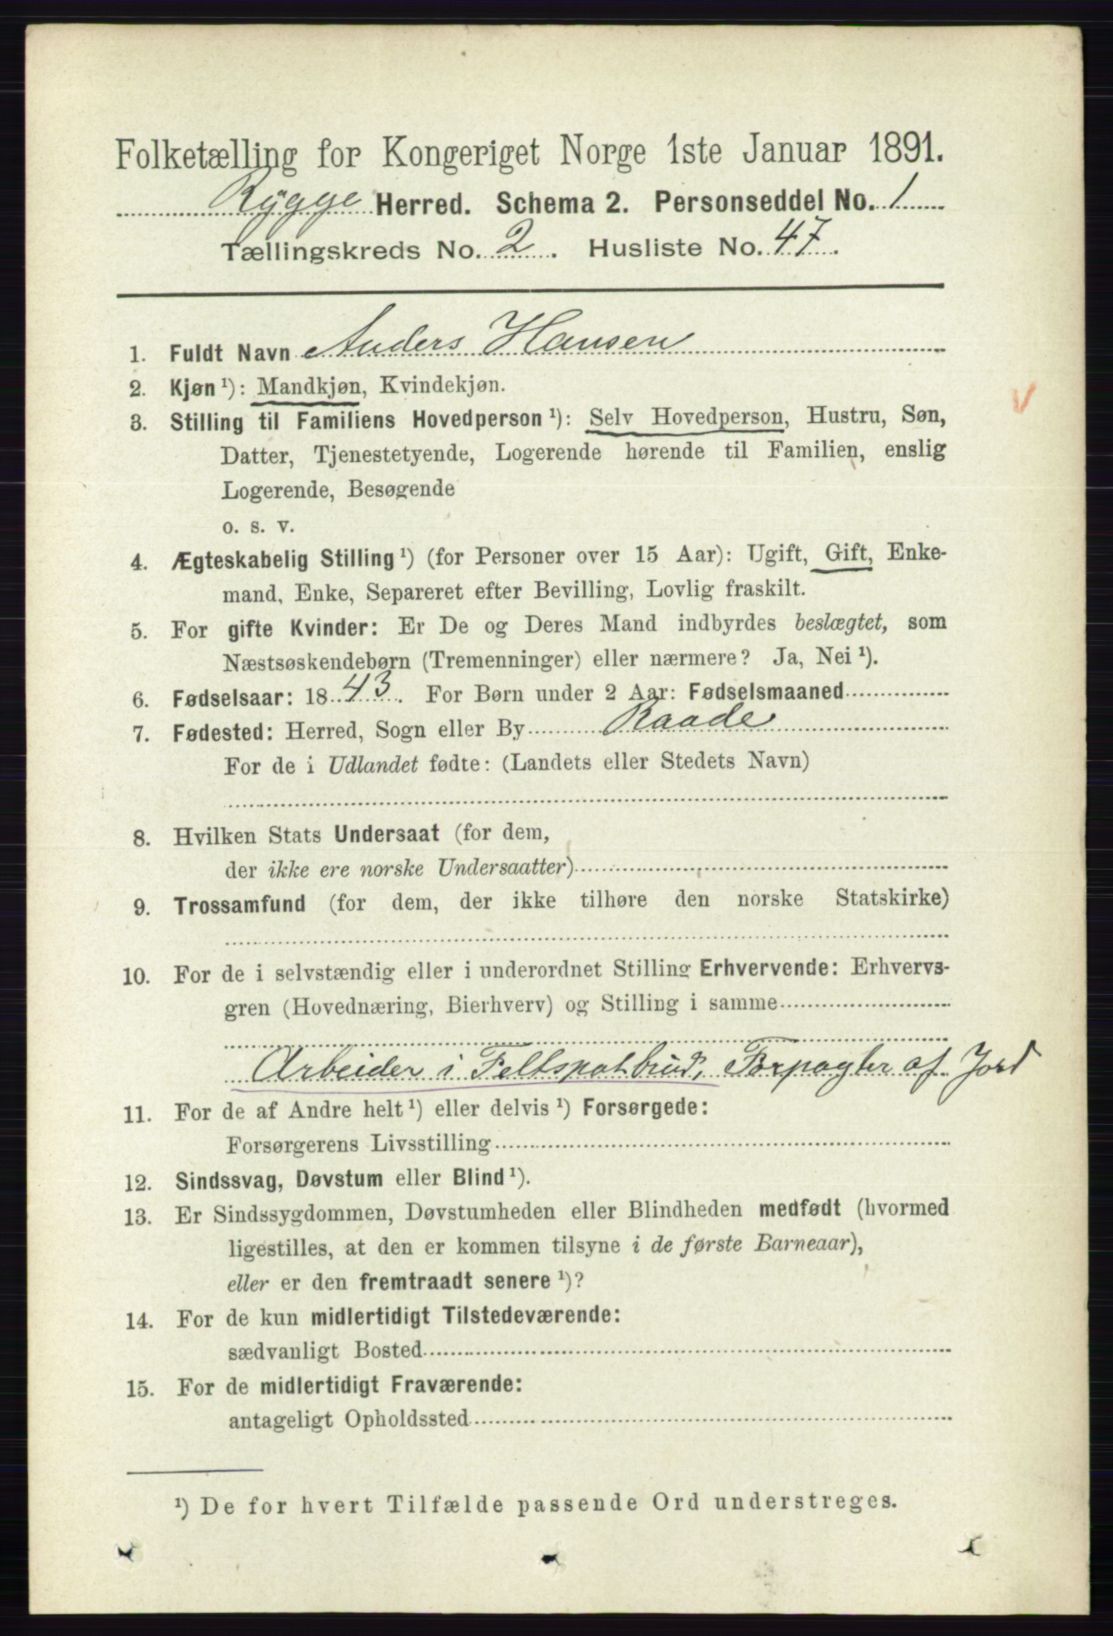 Folketælling for Kongeriget Norge 1ste Januar 1891.
Rygge Herred. Schema 2. Personseddel No. 1
Tællingskreds No. 2. Husliste No. 47.
1. Fuldt Navn Anders Hansen
2. Kjøn ¹): Mandkjøn, Kvindekjøn.
3. Stilling til Familiens Hovedperson ¹): Selv Hovedperson, Hustru, Søn,
Datter, Tjenestetyende, Logerende hørende til Familien, enslig
Logerende, Besøgende
o. s. v.
4. Ægteskabelig Stilling ¹) (for Personer over 15 Aar): Ugift, Gift, Enke-
mand, Enke, Separeret efter Bevilling, Lovlig fraskilt.
5. For gifte Kvinder: Er De og Deres Mand indbyrdes beslægtet, som
Næstsøskendebørn (Tremenninger) eller nærmere? Ja, Nei ¹).
6. Fødselsaar: 1843. For Børn under 2 Aar: Fødselsmaaned
7. Fødested: Herred, Sogn eller By Raade
For de i Udlandet fødte: (Landets eller Stedets Navn)
8. Hvilken Stats Undersaat (for dem,
der ikke ere norske Undersaatter)
9. Trossamfund (for dem, der ikke tilhøre den norske Statskirke)
10. For de i selvstændig eller i underordnet Stilling Erhvervende: Erhvervs-
gren (Hovednæring, Bierhverv) og Stilling i samme
Arbeider i Feltspatbrud, Forpagter af Jord
11. For de af Andre helt ¹) eller delvis ¹) Forsørgede:
Forsørgerens Livsstilling
12. Sindssvag, Døvstum eller Blind ¹).
13. Er Sindssygdommen, Døvstumheden eller Blindheden medfødt (hvormed
ligestilles, at den er kommen tilsyne i de første Barneaar),
eller er den fremtraadt senere ¹)?
14. For de kun midlertidigt Tilstedeværende:
sædvanligt Bosted
15. For de midlertidigt Fraværende:
antageligt Opholdssted
¹) De for hvert Tilfælde passende Ord understreges.